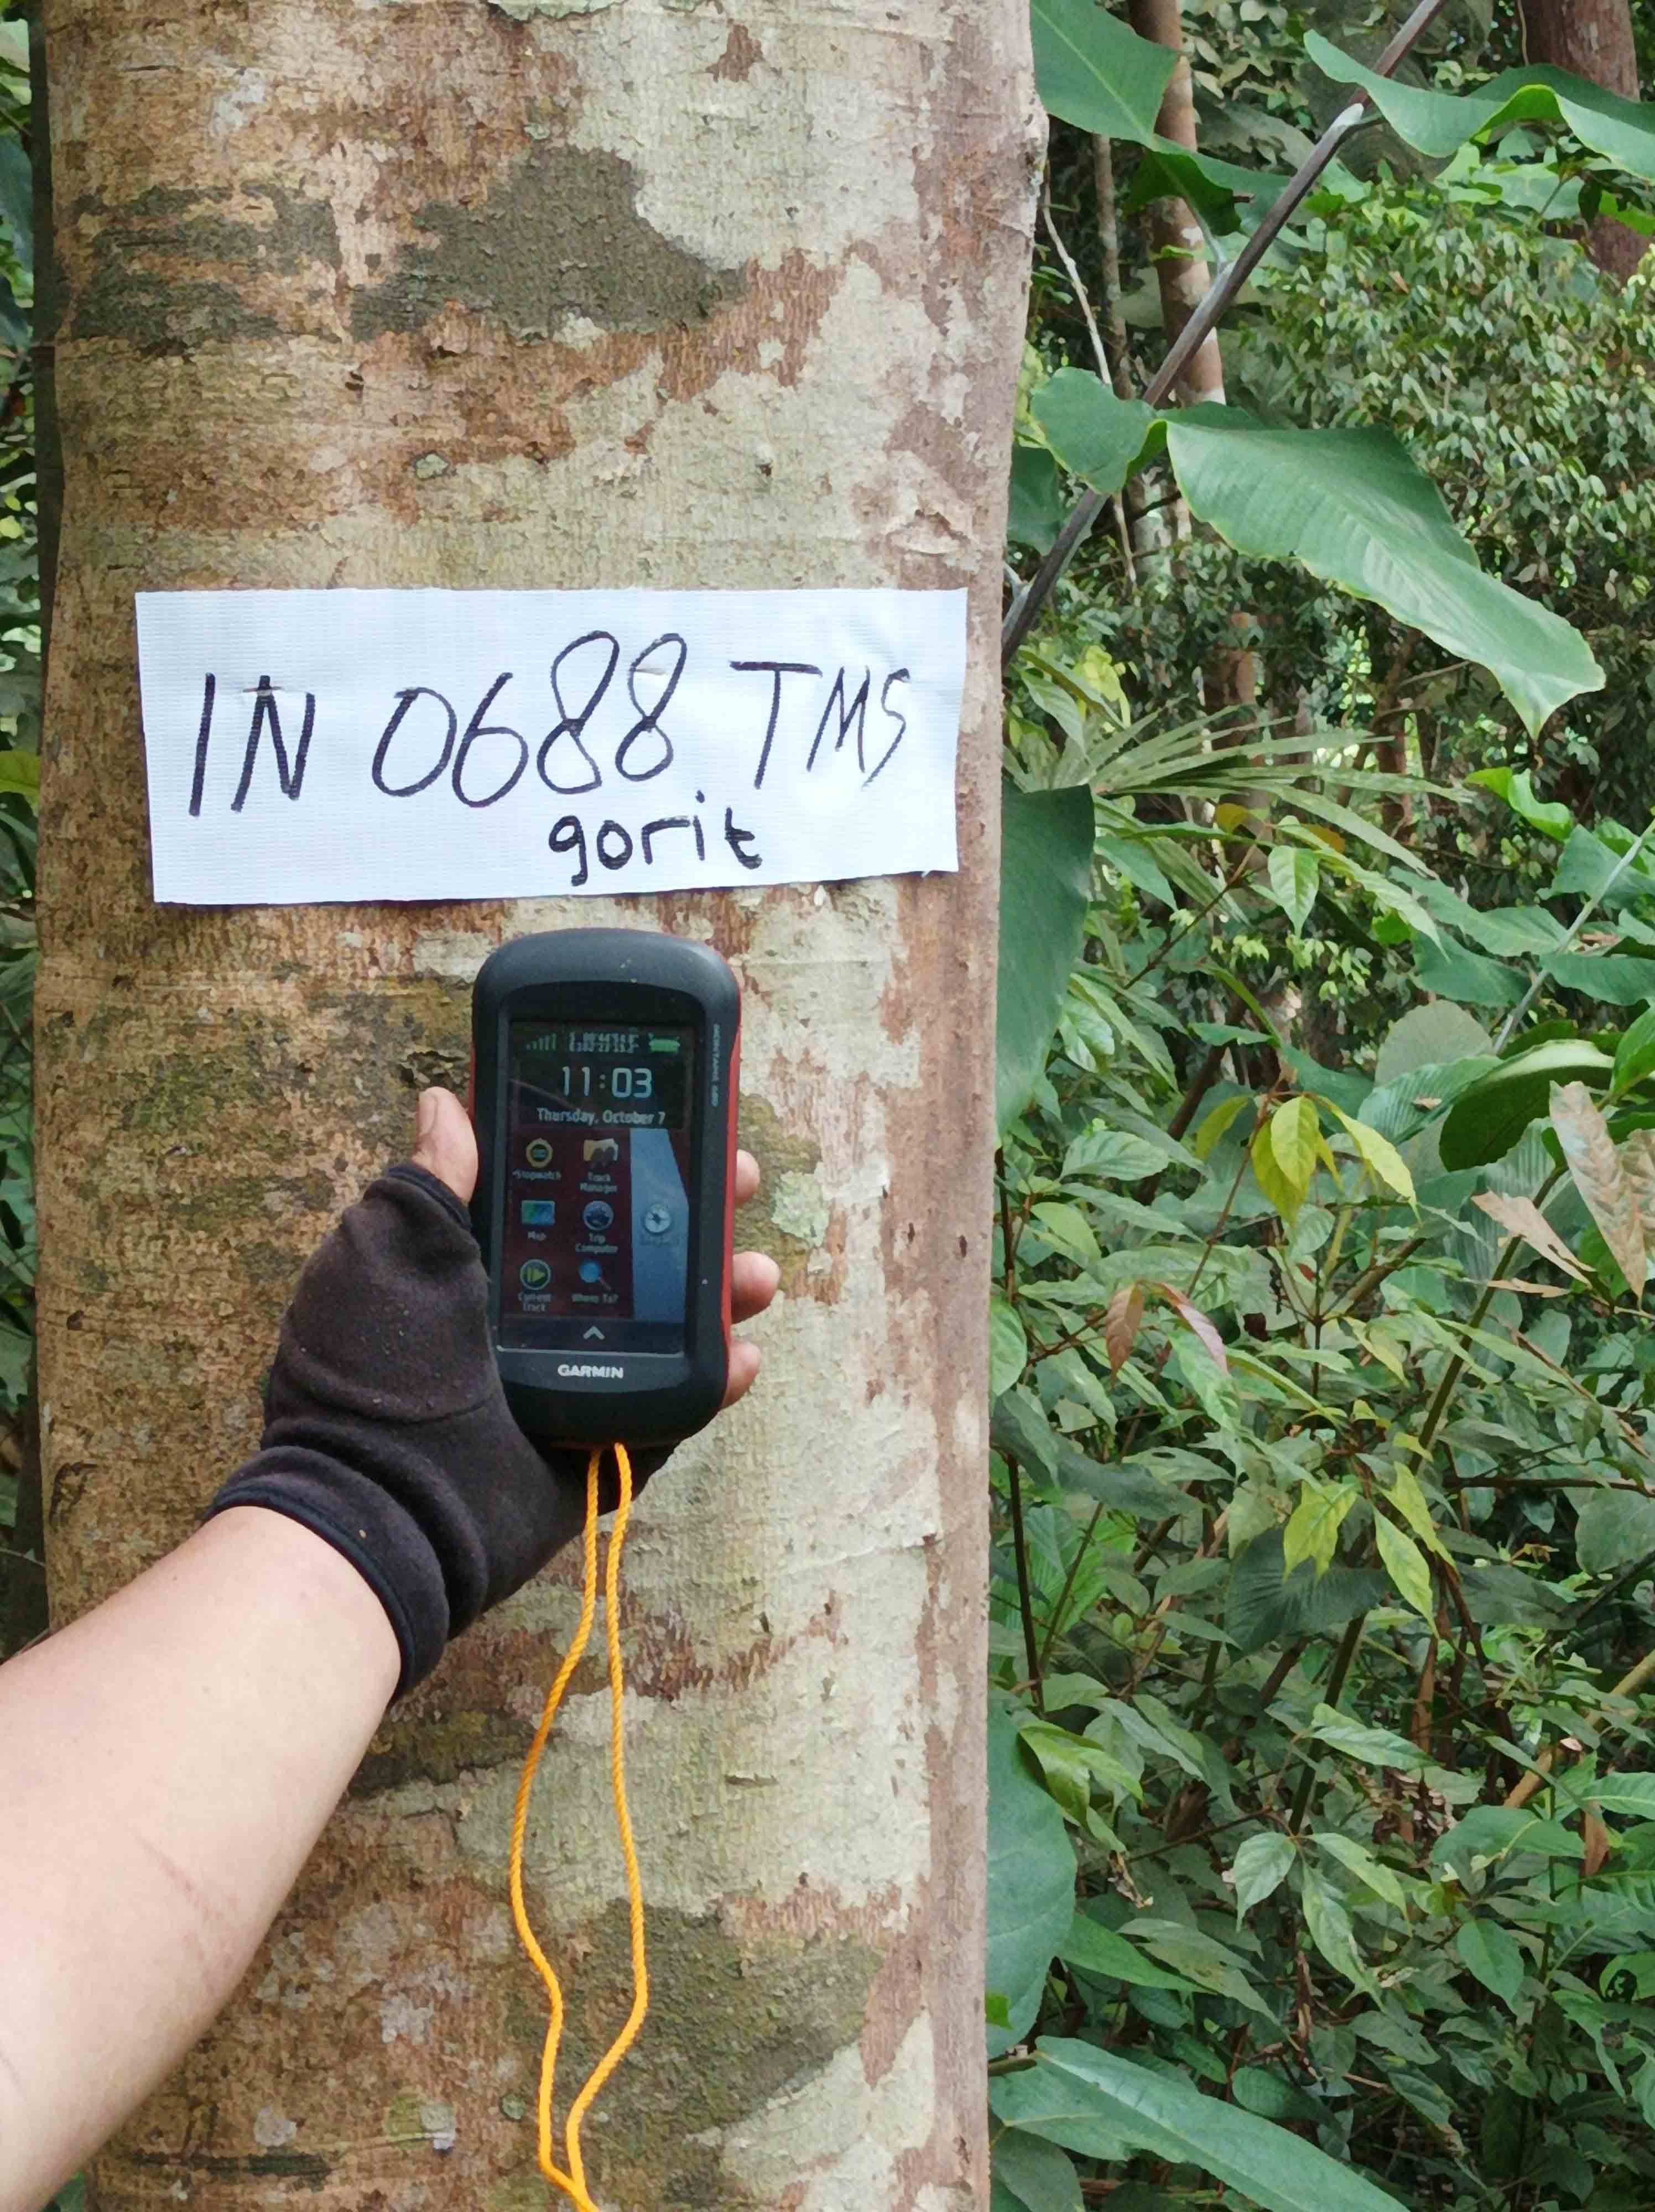 IN 0688 TMS
gorit
11:03
Thursday, October 7
Stopwatch
Track Manager
Map
Trip Computer
Current Track
Where To?
GARMIN